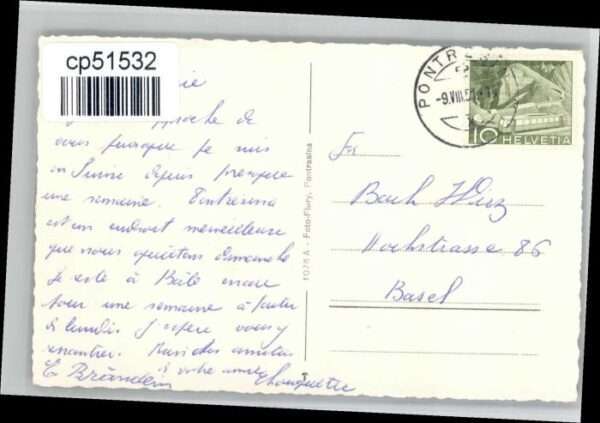 cp51532
approche de
vous puisque je suis
en Suisse depuis presque
une semaine. Pontresina
est un endroit merveilleux
que nous quittons dimanche
Je reste à Bâle encore
pour une semaine à partir
de lundi. J'espère vous y
rencontrer.
à votre amie
E. Brändein
1028 A - Foto-Flury, Pontresina
PONTRE
-9.VIII.5
10
HELVETIA
Bach
Hochstrasse 86
Basel